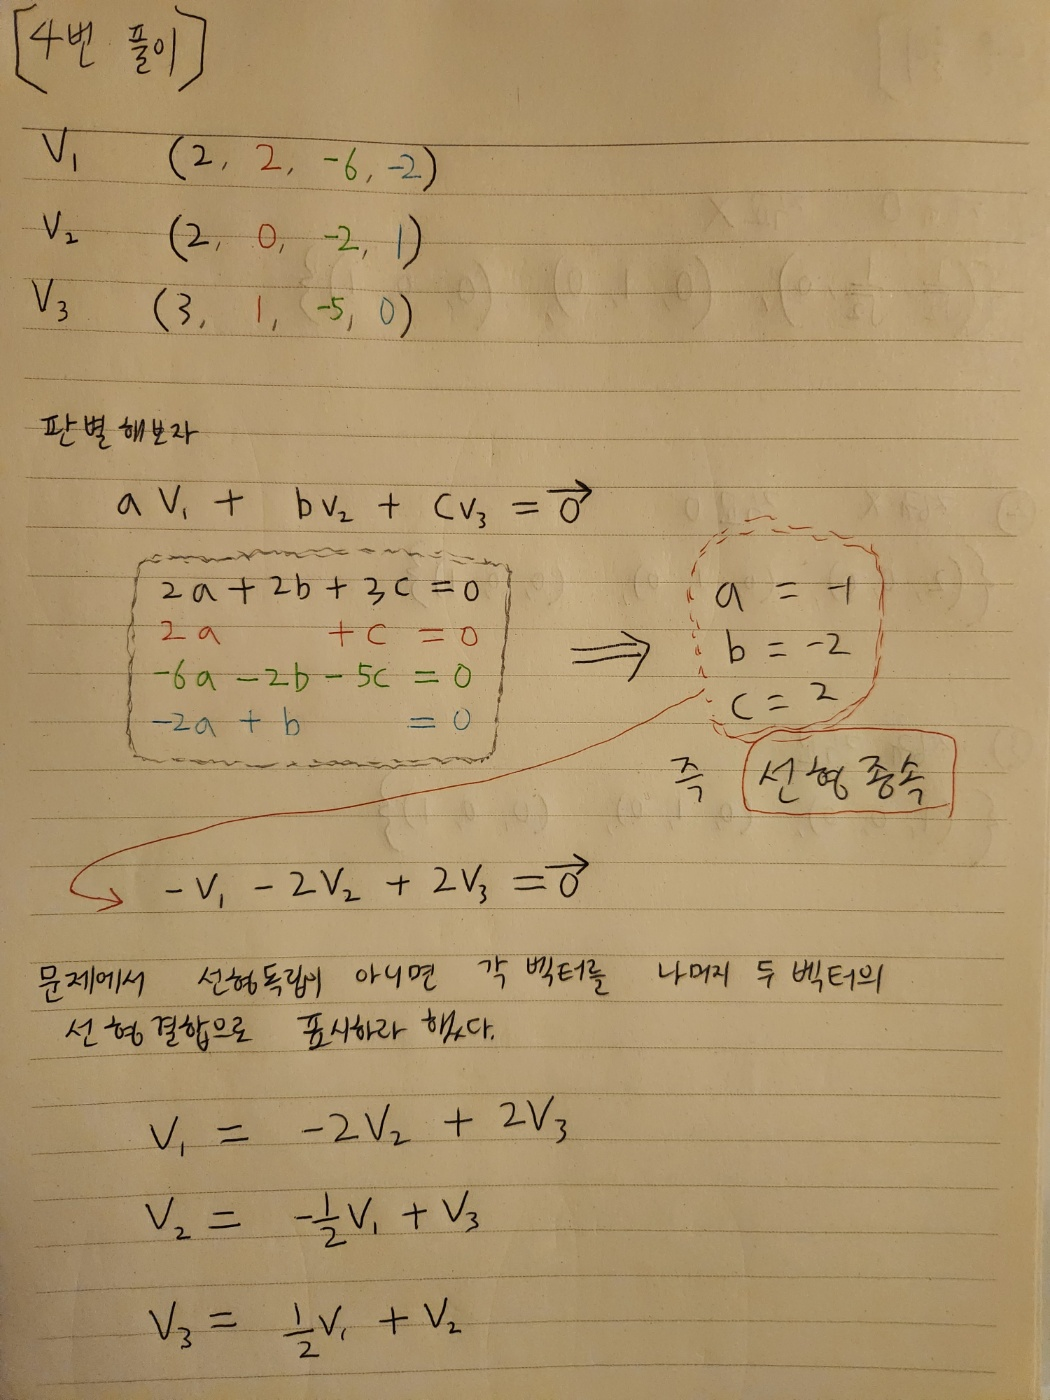 [4번 풀이]
V₁ (2, 2, -6, -2)
V₂ (2, 0, -2, 1)
V₃ (3, 1, -5, 0)
판별해보자
a V₁ + bV₂ + cV₃ = 0⃗
2a + 2b + 3c = 0
2a + c = 0
-6a - 2b - 5c = 0
-2a + b = 0
⟹
a = -1
b = -2
c = 2
즉 선형종속
-V₁ - 2V₂ + 2V₃ = 0⃗
문제에서 선형독립이 아니면 각 벡터를 나머지 두 벡터의
선형결합으로 표시하라 했다.
V₁ = -2V₂ + 2V₃
V₂ = -1/2 V₁ + V₃
V₃ = 1/2 V₁ + V₂